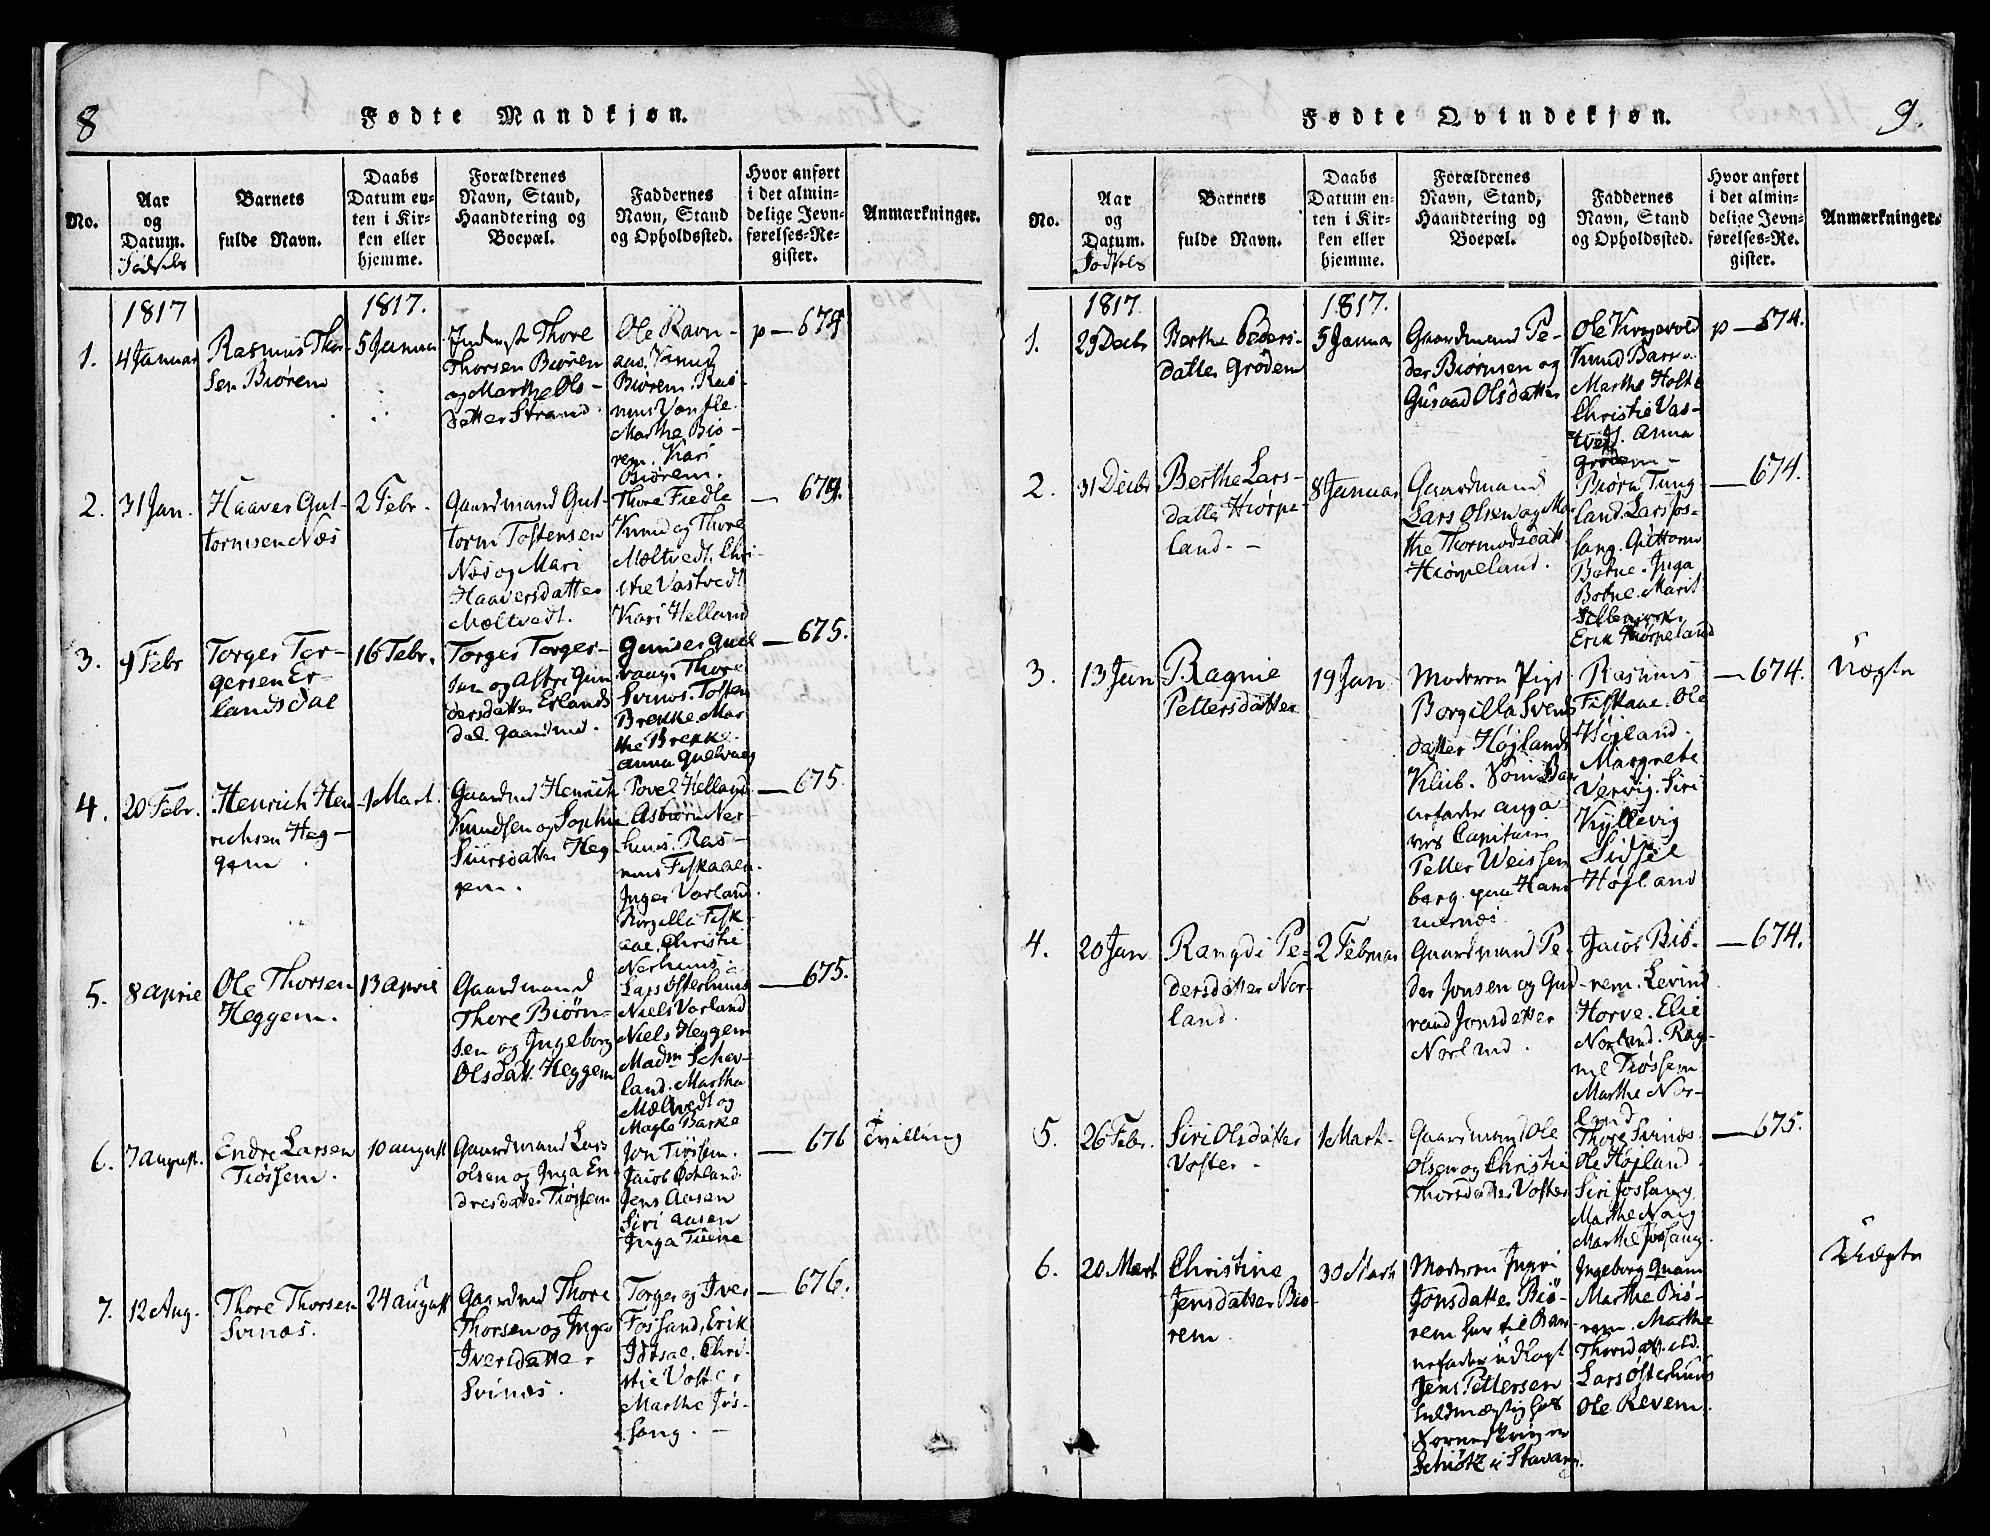 8
Fødte Mandkjøn.
No.
Aar
og
Datum.
Fødsels
Barnets
fulde Navn.
Daabs
Datum en-
ten i Kir-
ken eller
hjemme.
Forældrenes
Navn, Stand,
Haandtering og
Boepæl.
Faddernes
Navn, Stand
og Opholdssted.
Hvor anført
i det almin-
delige Jevn-
førelses-Re-
gister.
Anmærkninger.
1817
1817.
1.
4 Januar
Rasmus Thor-
sen Biørem
5 Januar
Thore
Thorsen Biørem
og Marthe Ols-
datter Strand.
Ole Ravn-
aas. Knud
Biørem. Ras-
mus
Marthe Biø-
rem. Kari
Biørem.
p — 674
2.
31 Jan.
Haaver Gut-
tormsen Næs
2 Febr.
Gaardmand Gut-
torm Tostensen
Næs og Mari
Haaversdatter
Mæltvedt.
Thore Fiedle
Knud og Thore
Mæltvedt. Chri-
stie Vastvedt
Kari Helland
— 674.
3.
4 Febr
Torger Tor-
gersen Er-
landsdal
16 Febr.
Torger Torger-
sen og Astri Gun
dersdatter Erlands
dal. Gaardmd.
Thore
Svinæs. Tosten
Brekke. Mar
the Brekke.
Anna
— 675.
4.
20 Febr.
Henrich Hen
richsen Heg-
gem
1 Mart.
Gaardmd Henrich
Knudsen og Sophie
Siursdatter Heg
gem.
Povel Helland
Asbiørn Ner-
huus. Ras-
mus Fiskaaen
Inger Vorland.
Borgilla Fisk-
aae. Christie
Nerhuus.
— 675.
5.
8 April
Ole Thorsen
Heggem.
13 April
Gaardmand
Thore Biørn-
sen og Ingeborg
Olsdatt. Heggem
Lars Østerhuus
Niels Vorland
Niels Heggem
Madm Schav-
land. Martha
Mæltvedt og
Magla Barke
— 675.
6.
7 August.
Endre Larsen
Tiøssem.
10 August
Gaardmand Lars
Olsen og Inga En-
dresdatter Tiøssem
Jon Tiøssem.
Jacob Østland.
Jens Aasen
Siri Aasen
Inga
— 676
Tvilling
7.
12 Aug.
Thore Thorsen
Svinæs.
24 August
Gaardmd Thore
Thorsen og Inger
Iversdatter
Svinæs.
Torger og Iver
Fossand. Erik
Idsal. Chri-
stie Voster
Marthe Jøs-
sang. —
— 676.
9.
Fødte Qvindekjøn.
No.
Aar
og
Datum.
Fødsels
Barnets
fulde Navn.
Daabs
Datum en-
ten i Kir-
ken eller
hjemme.
Forældrenes
Navn, Stand,
Haandtering og
Boepæl.
Faddernes
Navn, Stand
og Opholdssted.
Hvor anført
i det almin-
delige Jevn-
førelses-Re-
gister.
Anmærkninger.
1817.
1817.
1.
29 Decbr
Berthe Peders-
datter Grødem
5 Januar
Gaardmand Pe-
der Biørnsen og
Gusaad Olsdatter
Ole Krogevold
Knud Barke.
Marthe Holte
Christie Vas-
tvedt. Anna
Grødem —
p — 674.
2.
31 Decbr
Berthe Lars-
datter Hiørpe-
land. —
8 Januar
Gaardmand
Lars Olsen og Mar
the Thormodsdatt.
Hiørpeland.
Biørn Tung
land. Lars Jøs-
sang. Guttorm
Botne. Inga
Botne. Marit
Erik Hiørpeland
— 674.
3.
13 Jan
Ragnie
Pettersdatter
19 Jan
Moderen Pige
Borgilla Svens
datter Højlands
Klub. Som Bar
nefader anga
ves Capitain
Petter Weissen
berg. paa Ham
mernæs.
Rasmus
Fiskaae. Ole
Højland.
Margrete
Vervig. Siri
Kyllevig
Sidsel
Højland
— 674.
Uægte
4.
20 Jan
Rangdi Pe-
dersdatter Nor-
land.
2 Februar
Gaardmand Pe-
der Jonsen og Gud-
rand Jonsdatter
Norland.
Jacob Biø-
rem. Levind
Horve. Elie
Norland. Rag-
nil Tiøssem
Marthe Nor-
land
— 674.
5.
26 Febr.
Siri Olsdatter
Voster.
1 Mart.
Gaardmand Ole
Olsen og Christie
Thorsdatter Voster
Thore Svinæs.
Ole Højland.
Siri Jøssang
Marthe Nag
Marthe Jøssang.
— 675.
6.
20 Mart.
Christine
Jensdatter Biø-
rem
30 Marts
Moderen Ingri
Jonsdatter Biø-
rem har til Bar-
nefader udlagt
Jens Pettersen
fuldmægtig hos
Sorenskriver
Schiøtz i Stavang.
Ingeborg Quam
Marthe Biø-
rem. Marthe
Thorsdatt. ibd.
Lars Østerhuus
Ole Revem.
Uægte